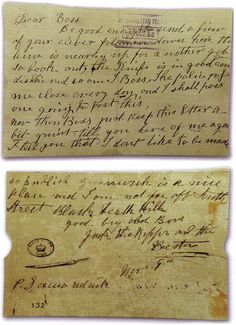 Dear Boss
Be good enough send a few
of your clever down here the
time is nearly up for a another job
so look out the knife is in good con
dishun and so am I Boss. The police pass
me close every day, and I shall pass
one going to post this
now then Boss just keep this letter a
bit quiet till you here of me aga
I tell you that I dont like to be made
so English Greenwich is a nice
place and I am not far off South
Street Black heath Hill
good bye old Boss
Jack the Ripper and the
Bester
P.S excuse red ink
132